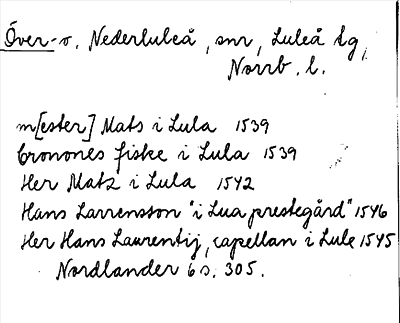 Över- o. Nederluleå, snr, Luleå tg,
Norrb. l.
m[ester] Mats i Lula 1539
Cronones fiske i Lula 1539
Her Matz i Lula 1542
Hans Larrensson "i Lua prestegård" 1546
Her Hans Laurentij, capellan i Lule 1545
Nordlander 6 s. 305.